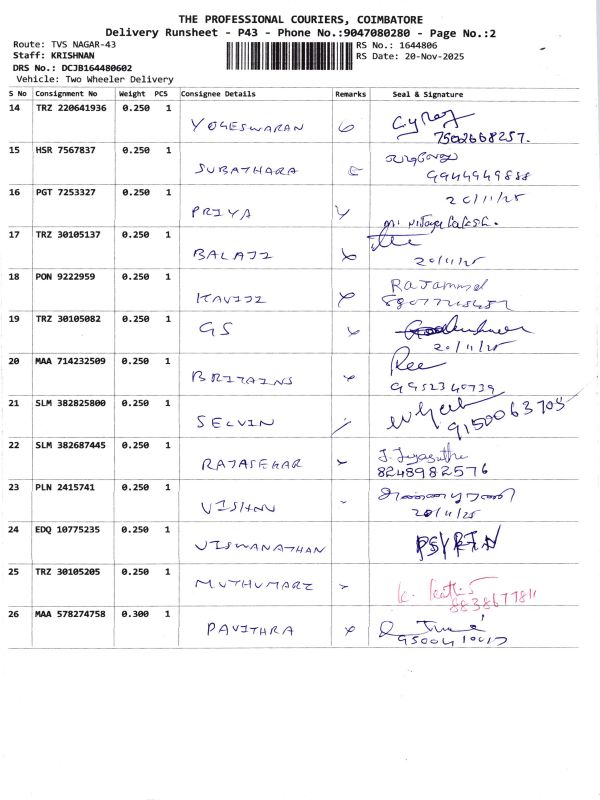 THE PROFESSIONAL COURIERS, COIMBATORE
Delivery Runsheet - P43 - Phone No.:9047080280 - Page No.:2
Route: TVS NAGAR-43 RS No.: 1644806
Staff: KRISHNAN RS Date: 20-Nov-2025
DRS No.: DCJB164480602
Vehicle: Two Wheeler Delivery
S No Consignment No Weight PCS Consignee Details Remarks Seal & Signature
14 TRZ 220641936 0.250 1 YOGESWARAN
7502668257.
15 HSR 7567837 0.250 1 SUBATHARA
9944949888
16 PGT 7253327 0.250 1 PRIYA 20/11/25
17 TRZ 30105137 0.250 1 BALAJI
20/11/25
18 PON 9222959 0.250 1 KAVIJI Rajammal
19 TRZ 30105082 0.250 1 GS
20/11/25
20 MAA 714232509 0.250 1 BRITAINS Ree
9952340739
21 SLM 382825800 0.250 1 SELVIN 9150063705
22 SLM 382687445 0.250 1 RAJASEKAR J. Jayasutha
8248982576
23 PLN 2415741 0.250 1 VISHNU
20/11/25
24 EDQ 10775235 0.250 1 VISWANATHAN
25 TRZ 30105205 0.250 1 MUTHUMARI
26 MAA 578274758 0.300 1 PAVITHRA